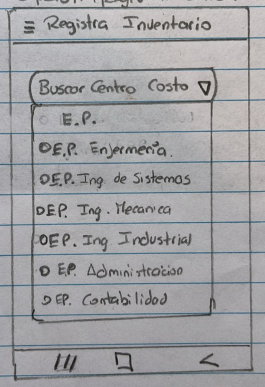 ≡ Registra Inventario
Buscar Centro Costo ▽
E.P.
O E.P. Enfermeria.
O E.P. Ing. de Sistemas
O E.P. Ing. Mecanica
O E.P. Ing Industrial
O E.P. Administracion
O E.P. Contabilidad